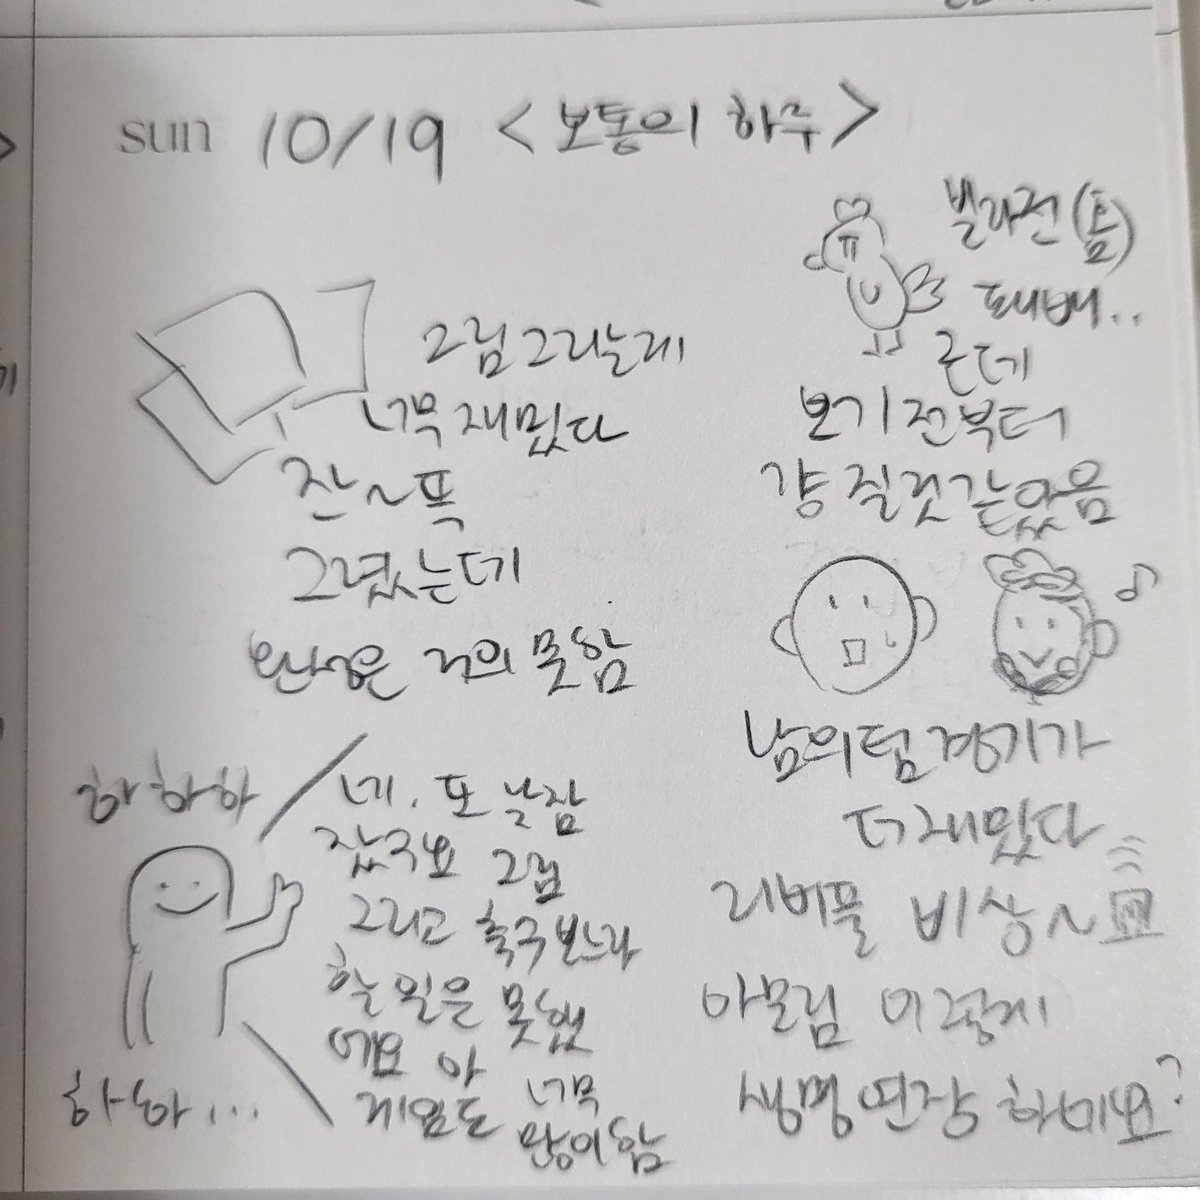 sun 10/19 <보통의 하루>
그림그리는게
너무 재밌다
잔~뜩
그렸는데
완성은 거의 못함
하하하
네. 또 늦잠
잤구요 그림
그리고 축구보느라
할 일은 못했
네요 아 너무
게임도 많이함
하하하...
빌라전(홈)
패배..
근데
보기전부터
걍 질것같았음
남의팀경기가
더재밌다
리버풀 비상~
아모림 이렇게
생명연장 하네요?